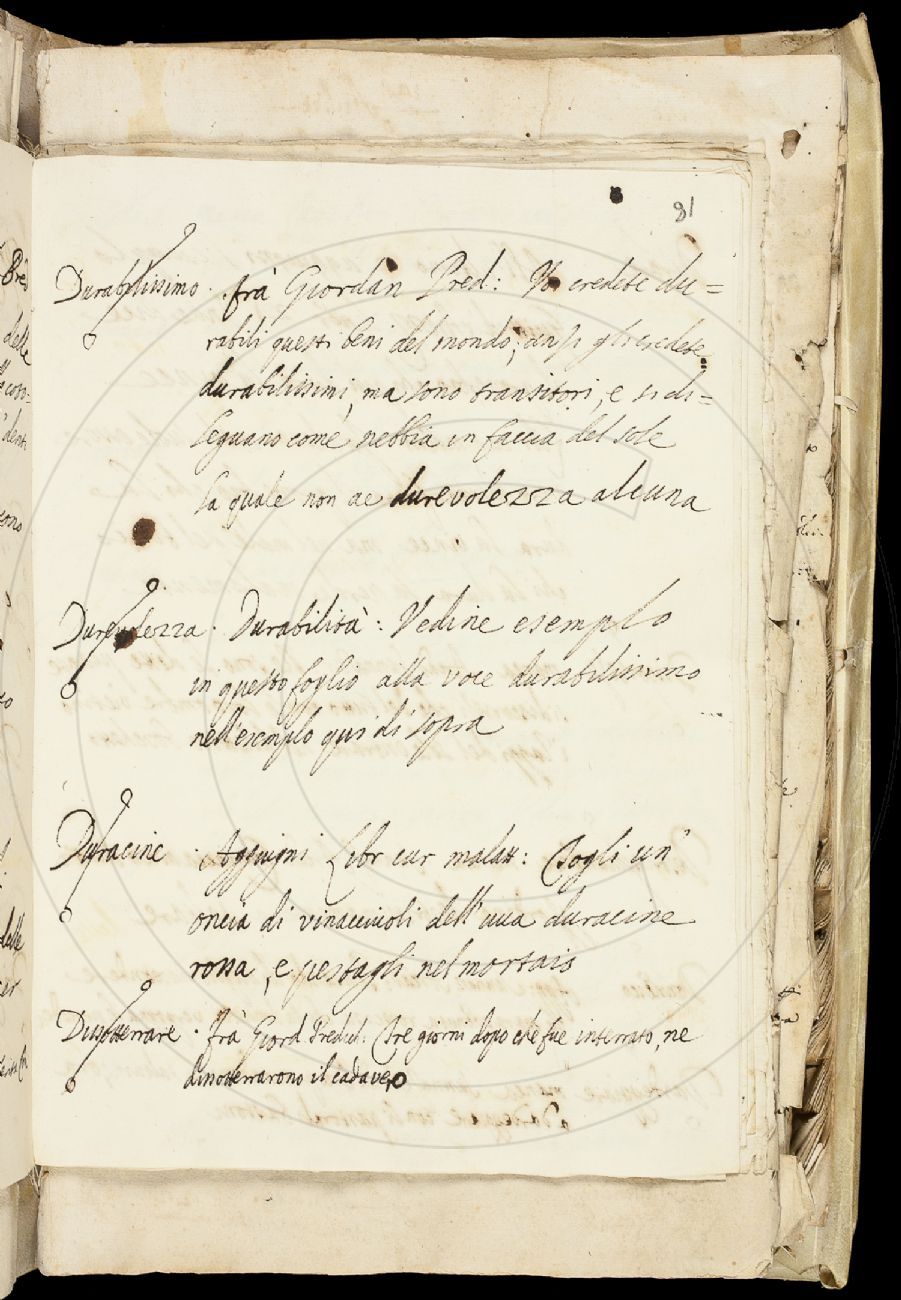 81
Durabilissimo. frà Giordan Pred: Voi credete du=
rabili questi beni del mondo, anzi gli credete
durabilissimi, ma sono transitori, e si di=
leguano come nebbia in faccia del sole
la quale non ae durevolezza alcuna
Durevolezza. Durabilità: Vedine esemplo
in questo foglio alla voce durabilissimo
nell'esemplo qui di sopra
Duracine. Aggiugni Libr cur malatt: Togli un'
oncia di vinacciuoli dell'uua duracine
rossa, e pestagli nel mortaio
Dissotterrare. Frà Giord Pred. Tre giorni dopo che fue interrato, ne
dissotterrarono il cadavero